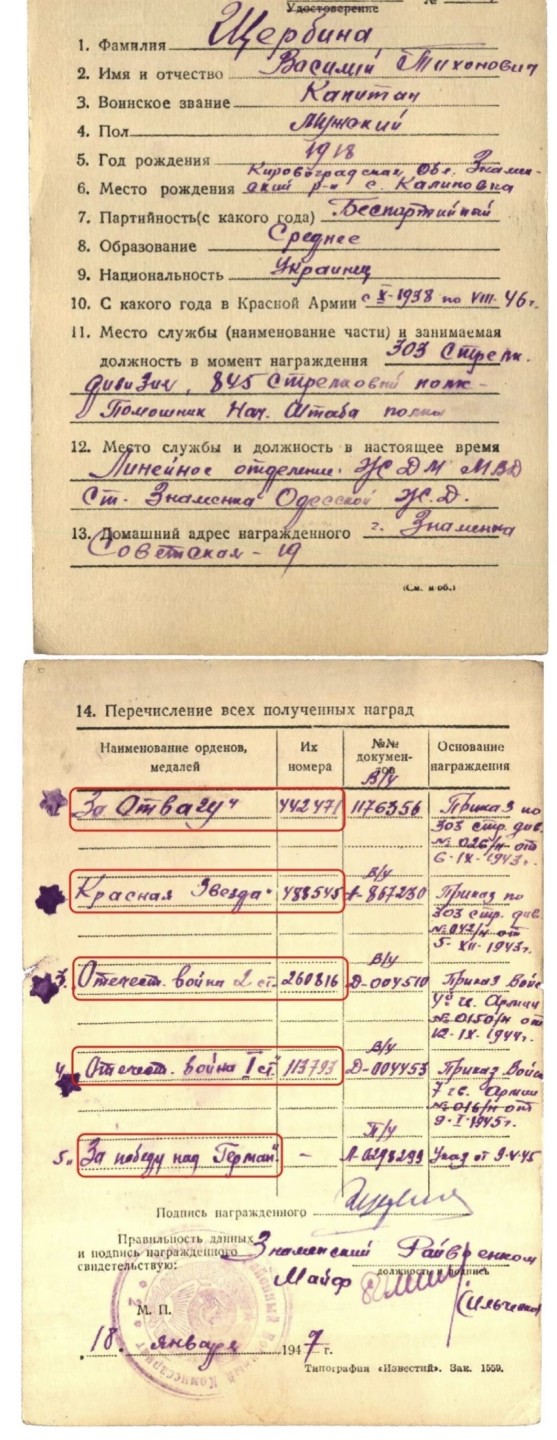 Удостоверение №
1. Фамилия Щербина
2. Имя и отчество Василий Тихонович
3. Воинское звание Капитан
4. Пол Мужский
5. Год рождения 1918
Кировоградская Обл. Знамен-
6. Место рождения ский р-н с. Калиновка
7. Партийность(с какого года) Беспартийный
8. Образование Среднее
9. Национальность Украинец
10. С какого года в Красной Армии с X-1938 по VIII-46г.
11. Место службы (наименование части) и занимаемая
должность в момент награждения 303 Стрелк.
дивизии, 845 Стрелковый полк -
Помошник Нач. Штаба полка
12. Место службы и должность в настоящее время
Линейное отделение ЖДМ МВД
Ст. Знаменка Одесской Ж.Д.
13. Домашний адрес награжденного г. Знаменка
Советская - 19
(См. н об.)
14. Перечисление всех полученных наград
Наименование орденов, медалей Их номера №№ документов Основание награждения
В/у
"За Отвагу" 442471 1176356 Приказ по
303 стр. див.
№ 026/н от
6-IX-1943г.
В/у
Красная Звезда" 488545 А-867230 Приказ по
303 стр. див.
№ 042/н от
5-XII-1943г.
В/у
3. Отечест. война 2 ст. 260816 Д-004510 Приказ Войс
Армии
№ 0150/н от
12-IX-1944г.
В/у
4. Отечест. война I ст. 113793 Д-004453 Приказ Войск
7 гв. Армии
№ 016/н от
9-I-1945г.
П/у
5. "За победу над Герман" - А-0298299 Указ от 9-V-45
Подпись награжденного
Правильность данных
и подпись награжденного Знаменский Райвоенком
свидетельствую:
должность и подпись
Майор
(Ильченко
М. П.
18. января 1947 г.
Типография «Известий». Зак. 1559.